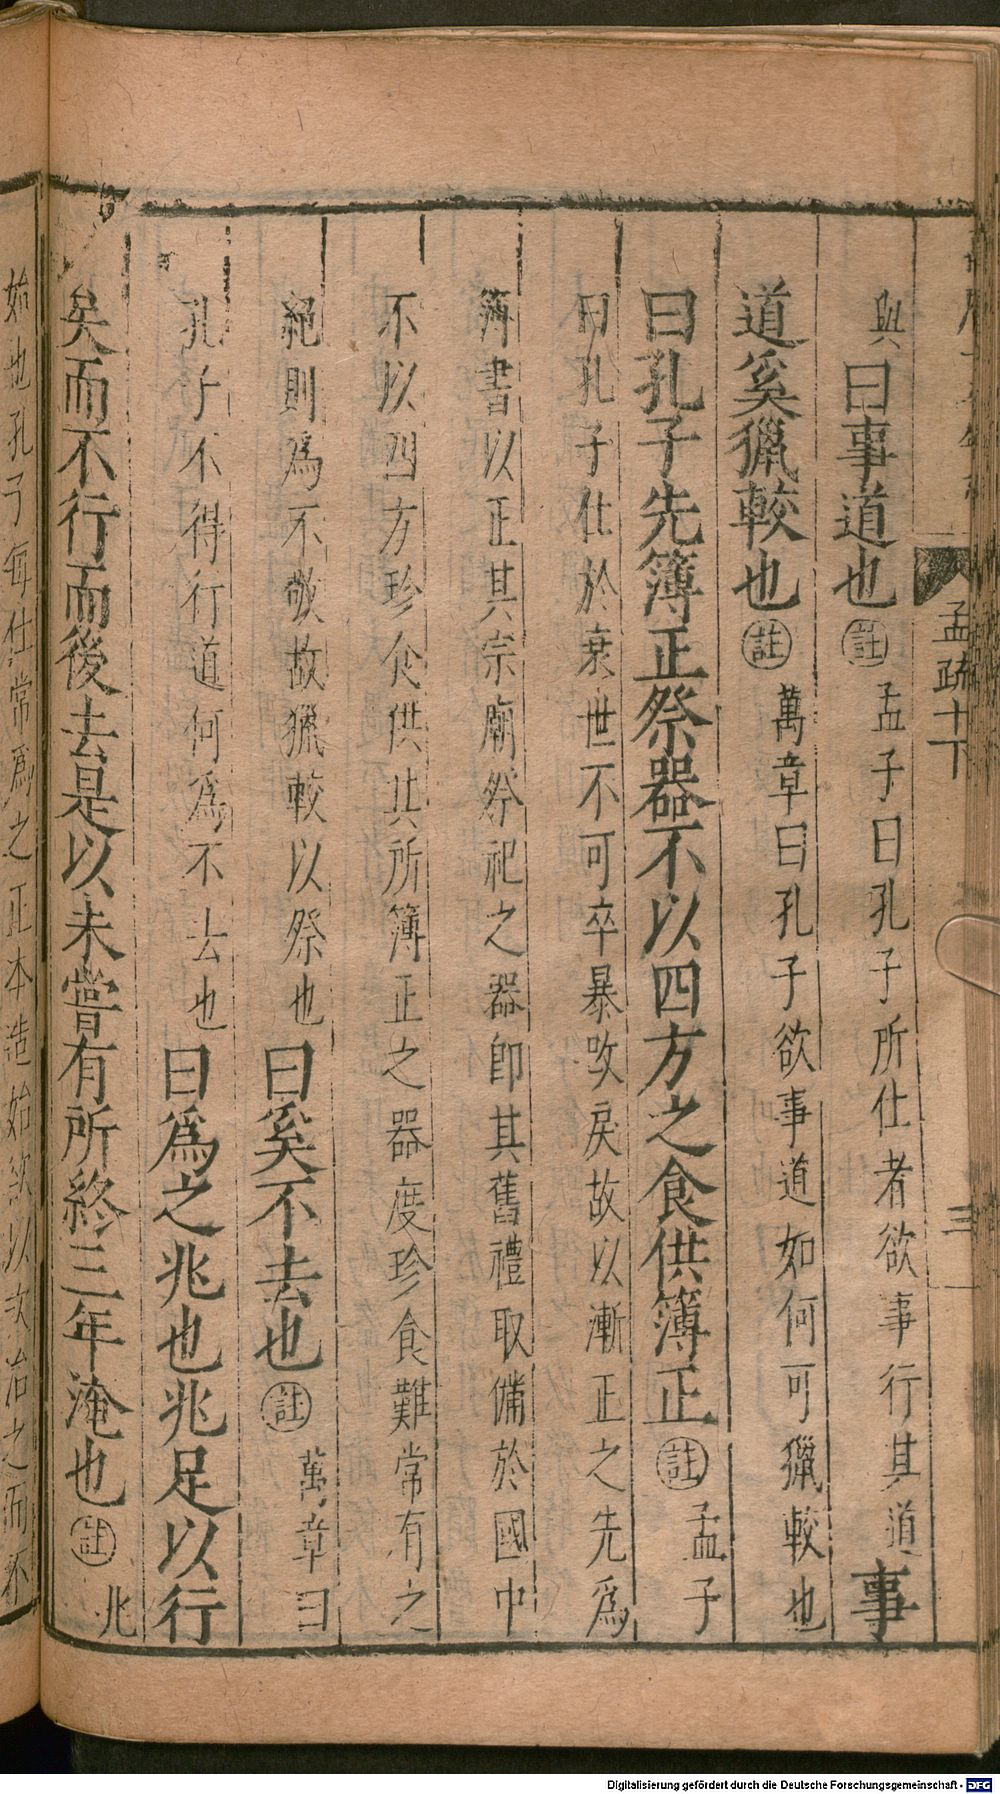 孟疏十下
三
與曰事道也註孟子曰孔子所仕者欲事行其道事
道奚獵較也註萬章曰孔子欲事道如何可獵較也
曰孔子先簿正祭器不以四方之食供簿正註孟子
曰孔子仕於衰世不可卒暴攺戾故以漸正之先爲
簿書以正其宗廟祭祀之器卽其舊禮取備於國中
不以四方珍食供其所簿正之器度珍食難常有之
絕則爲不敬故獵較以祭也曰奚不去也註萬章曰
孔子不得行道何爲不去也曰爲之兆也兆足以行
矣而不行而後去是以未嘗有所終三年淹也註兆
始也孔子每仕常爲之正本造始欲以次治之而不
Digitalisierung gefördert durch die Deutsche Forschungsgemeinschaft - DFG